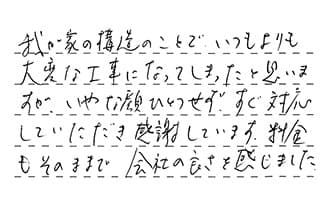 我が家の構造のことで、いつもよりも
大変な工事になってしまったと思いま
すが、いやな顔ひとつせず、すぐ対応
していただき感謝しています。料金
もそのままで、会社の良さを感じました